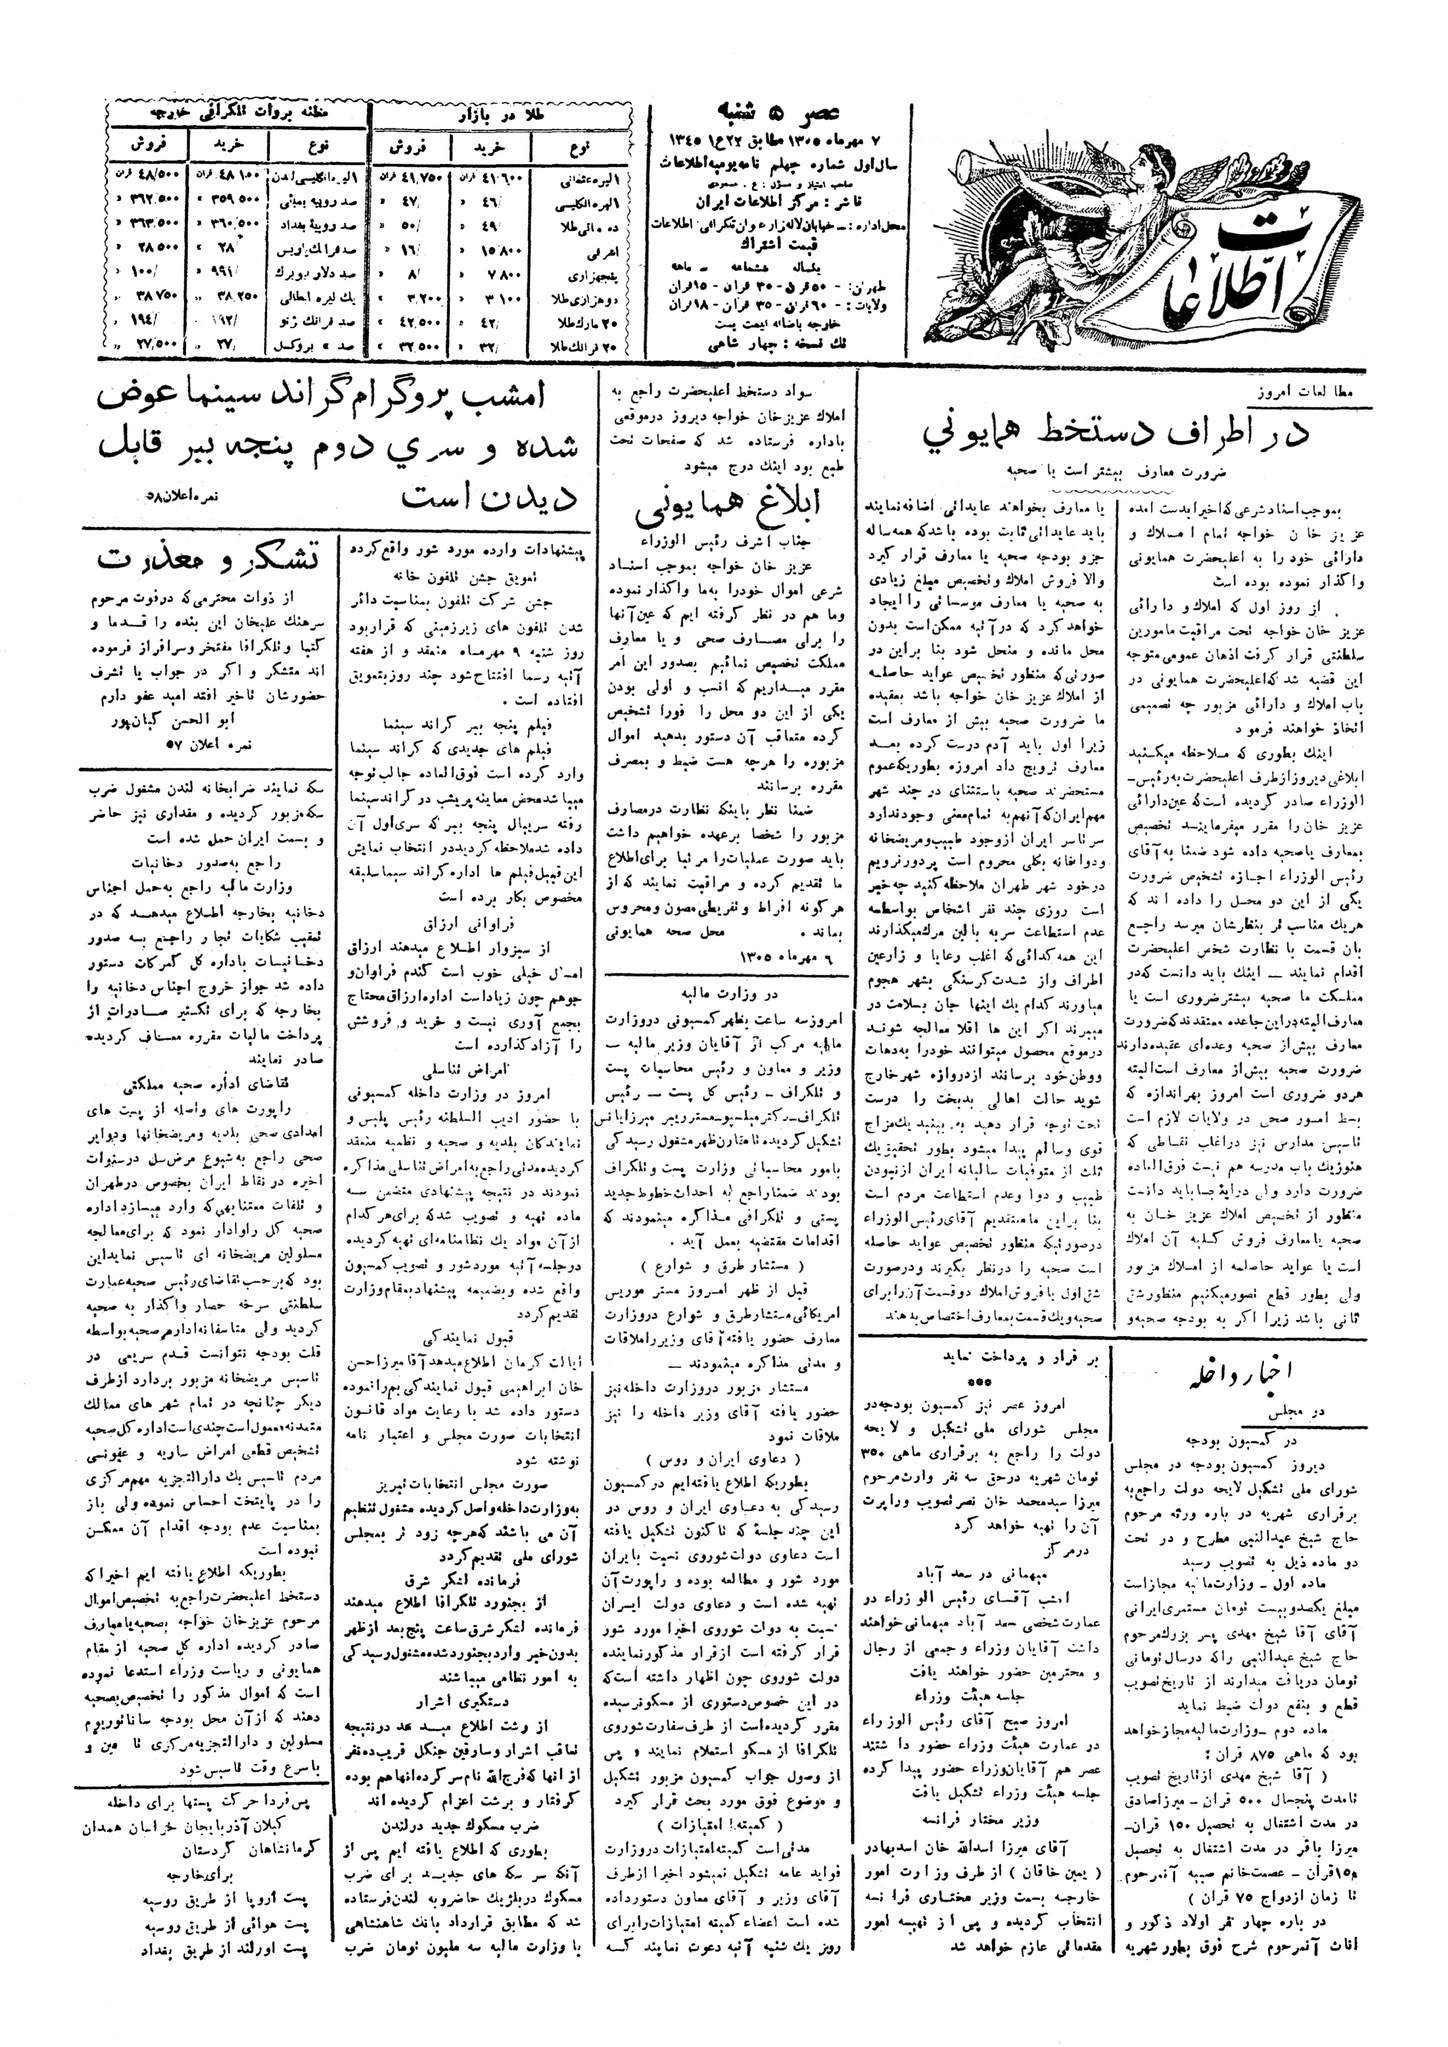 اطلاعات
عصر ۵ شنبه
۷ مهرماه ۱۳۰۵ مطابق ۲۲ ع۱ ۱۳۴۵
سال اول شماره چهلم نامه یومیه اطلاعات
صاحب امتیاز و مسؤل : ع . مسعودی
ناشر : مرکز اطلاعات ایران
محل اداره : ـ خیابان لاله‌زار عنوان تلگرافی اطلاعات
قیمت اشتراک
یکساله ششماهه سه ماهه
طهران : - ۵۰ قران - ۳۰ قران - ۱۵ قران
ولایات : - ۶۰ قران - ۳۵ قران - ۱۸ قران
خارجه باضافه قیمت پست
تک نسخه : چهار شاهی
طلا در بازار
نوع خرید فروش
۱ لیره عثمانی ۴۱٬۶۰۰ قران ۴۱٬۷۵۰ قران
۱ لیره انگلیسی ۴۶/ » ۴۷/ »
ده منانی طلا ۴۹/ » ۵۰/ »
اشرفی ۱۵٬۸۰۰ » ۱۶/ »
پنجهزاری ۷٬۸۰۰ » ۸/ »
دو هزاری طلا ۳٬۱۰۰ » ۳٬۲۰۰ »
۲۰ مارک طلا ۴۲/ » ۴۲٬۵۰۰ »
۲۰ فرانک طلا ۳۲/ » ۳۲٬۵۰۰ »
مظنه بروات تلگرافی خارجه
نوع خرید فروش
۱ لیره انگلیسی لندن ۴۸٬۱۰۰ قران ۴۸٬۵۰۰ قران
صد روپیه بمبئی ۳۵۹٬۵۰۰ » ۳۶۲٬۵۰۰ »
صد روپیه بغداد ۳۶۰٬۵۰۰ » ۳۶۳٬۵۰۰ »
صد فرانک پاریس ۲۸/ » ۲۸٬۵۰۰ »
صد دلار نیویرک ۹۹۱/ » ۱۰۰۰/ »
یک لیره ایطالی ۳۸٬۲۵۰ » ۳۸٬۷۵۰ »
صد فرانک ژنو ۱۹۲/ » ۱۹۴/ »
صد » بروکسل ۲۷/ » ۲۷٬۵۰۰ »
مطالعات امروز
در اطراف دستخط همایونی
ضرورت معارف بیشتر است یا صحیه
بموجب اسناد شرعی که اخیرا بدست آمده
عزیز خان خواجه تمام املاک و
دارائی خود را به اعلیحضرت همایونی
واگذار نموده بوده است
از روز اول که املاک و دارائی
عزیز خان خواجه تحت مراقبت مامورین
سلطنتی قرار گرفت اذهان عمومی متوجه
این قضیه شد که اعلیحضرت همایونی در
باب املاک و دارائی مزبور چه تصمیمی
اتخاذ خواهند فرمود
اینک بطوری که ملاحظه میکنید
ابلاغی دیروز از طرف اعلیحضرت به رئیس‌ـ
الوزراء صادر گردیده است که عین دارائی
عزیز خان را مقرر میفرمایند تخصیص
بمعارف یا صحیه داده شود ضمنا به آقای
رئیس الوزراء اجازه تشخیص ضرورت
یکی از این دو محل را داده اند که
هریک مناسب تر بنظرشان میرسد راجع
بان قسمت با نظارت شخص اعلیحضرت
اقدام نمایند ـ اینک باید دانست که در
مملکت ما صحیه بیشتر ضروری است یا
معارف البته در این جا عده معتقدند که ضرورت
معارف بیش از صحیه و عده‌ای عقیده دارند
ضرورت صحیه بیش از معارف است البته
هردو ضروری است امروز بهر اندازه که
بسط امور صحی در ولایات لازم است
تاسیس مدارس نیز در اغلب نقاطی که
هنوز یک باب مدرسه هم نیست فوق‌العاده
ضرورت دارد ولی در اینجا باید دانست
منظور از تخصیص املاک عزیز خان به
صحیه یا معارف فروش کلیه آن املاک
است یا عواید حاصله از املاک مزبور
ولی بطور قطع تصور میکنیم منظور شق
ثانی باشد زیرا اگر به بودجه صحیه و
یا معارف بخواهند عایداتی اضافه نمایند
باید عایداتی ثابت بوده باشد که همه ساله
جزو بودجه صحیه یا معارف قرار گیرد
والا فروش املاک و تخصیص مبلغ زیادی
به صحیه یا معارف موسساتی را ایجاد
خواهد کرد که در آتیه ممکن است بدون
محل مانده و منحل شود بنا بر این در
صورتی که منظور تخصیص عواید حاصله
از املاک عزیز خان خواجه باشد بعقیده
ما ضرورت صحیه بیش از معارف است
زیرا اول باید آدم درست کرده بعد
معارف ترویج داد امروزه بطوریکه عموم
مستحضرند صحیه باستثنای در چند شهر
مهم ایران که آنهم به تمام معنی وجود ندارد
سرتاسر ایران از وجود طبیب و مریضخانه
و دواخانه بکلی محروم است پر دور نرویم
در خود شهر طهران ملاحظه کنید چه خبر
است روزی چند نفر اشخاص بواسطه
عدم استطاعت سر به بالین مرگ میگذارند
این همه کدائی که اغلب رعایا و زارعین
اطراف و از شدت گرسنگی بشهر هجوم
میاورند کدام یک اینها جان بسلامت در
میبرند اگر این ها اقلا معالجه شوند
در موقع محصول میتوانند خود را به دهات
و وطن خود برسانند از دروازه شهر خارج
شوید حالت اهالی بدبخت را درست
تحت توجه قرار دهید به بینید یک مزاج
قوی و سالم پیدا میشود بطور تحقیق یک
ثلث از متوفیات سالیانه ایران از نبودن
طبیب و دوا و عدم استطاعت مردم است
بنا براین ما معتقدیم آقای رئیس الوزراء
در صورتیکه منظور تخصیص عواید حاصله
است صحیه را در نظر بگیرند و در صورت
شق اول با فروش املاک دو قسمت آن را برای
صحیه و یک قسمت به معارف اختصاص بدهند
اخبار داخله
در مجلس
در کمسیون بودجه
دیروز کمسیون بودجه در مجلس
شورای ملی تشکیل لایحه دولت راجع به
برقراری شهریه در باره ورثه مرحوم
حاج شیخ عبدالنبی مطرح و در تحت
دو ماده ذیل به تصویب رسید
ماده اول ـ وزارت مالیه مجاز است
مبلغ یکصد و بیست تومان مستمری ایرانی
آقای آقا شیخ مهدی پسر بزرگ مرحوم
حاج شیخ عبدالنبی را که در سال تومانی
تومان دریافت میدارند از تاریخ تصویب
قطع و بنفع دولت ضبط نماید
ماده دوم ـ وزارت مالیه مجاز خواهد
بود که ماهی ۸۷۵ قران :
( آقا شیخ مهدی از تاریخ تصویب
تا مدت پنجسال ۵۰۰ قران ـ میرزا صادق
در مدت اشتغال به تحصیل ۱۵۰ قران ـ
میرزا باقر در مدت اشتغال به تحصیل
۱۵۰ قران ـ عصمت خانم صبیه آنمرحوم
تا زمان ازدواج ۷۵ قران )
در باره چهار نفر اولاد ذکور و
اناث آنمرحوم شرح فوق بطور شهریه
بر قرار و پرداخت نماید
***
امروز عصر نیز کمسیون بودجه در
مجلس شورای ملی تشکیل و لایحه
دولت را راجع به برقراری ماهی ۳۵۰
تومان شهریه در حق سه نفر وارث مرحوم
میرزا سید محمد خان نصر تصویب و راپرت
آن را تهیه خواهد کرد
در مرکز
میهمانی در سعد آباد
امشب آقای رئیس الوزراء در
عمارت شخصی سعد آباد میهمانی خواهند
داشت آقایان وزراء و جمعی از رجال
و محترمین حضور خواهند یافت
جلسه هیئت وزراء
امروز صبح آقای رئیس الوزراء
در عمارت هیئت وزراء حضور داشتند
عصر هم آقایان وزراء حضور پیدا کرده
جلسه هیئت وزراء تشکیل یافت
وزیر مختار فرانسه
آقای میرزا اسدالله خان اسدبهادر
( یمین خاقان ) از طرف وزارت امور
خارجه بسمت وزیر مختاری فرانسه
انتخاب گردیده و پس از تهیه امور
مقدماتی عازم خواهد شد
سواد دستخط اعلیحضرت راجع به
املاک عزیز خان خواجه دیروز در موقعی
باداره فرستاده شد که صفحات تحت
طبع بود اینک درج میشود
ابلاغ همایونی
جناب اشرف رئیس الوزراء
عزیز خان خواجه بموجب اسناد
شرعی اموال خود را به ما واگذار نموده
و ما هم در نظر گرفته ایم که عین آنها
را برای مصارف صحی و یا معارف
مملکت تخصیص نمائیم بصدور این امر
مقرر میداریم که انسب و اولی بودن
یکی از این دو محل را فورا تشخیص
کرده متعاقب آن دستور بدهید اموال
مزبوره را هرچه هست ضبط و بمصرف
مقرره برسانند
ضمنا نظر باینکه نظارت در مصارف
مزبور را شخصا برعهده خواهیم داشت
باید صورت عملیات را مرتبا برای اطلاع
ما تقدیم کرده و مراقبت نمایند که از
هرگونه افراط و تفریطی مصون و محروس
بماند . محل صحه همایونی
۶ مهرماه ۱۳۰۵
در وزارت مالیه
امروز سه ساعت بظهر کمسیونی در وزارت
مالیه مرکب از آقایان وزیر مالیه ـ
وزیر و معاون و رئیس محاسبات پست
و تلگراف ـ رئیس کل پست ـ رئیس
تلگراف ـ دکتر میلسپو ـ مستر ریپر میرزایانس
تشکیل گردیده تا مقارن ظهر مشغول رسیدگی
بامور محاسباتی وزارت پست و تلگراف
بودند ضمنا راجع به احداث خطوط جدید
پستی و تلگرافی مذاکره مینمودند که
اقدامات مقتضیه بعمل آید .
( مستشار طرق و شوارع )
قبل از ظهر امروز مستر موریس
امریکائی مستشار طرق و شوارع در وزارت
معارف حضور یافته آقای وزیر را ملاقات
و مدتی مذاکره مینمودند ـ
مستشار مزبور در وزارت داخله نیز
حضور یافته آقای وزیر داخله را نیز
ملاقات نمود
( دعاوی ایران و روس )
بطوریکه اطلاع یافته‌ایم در کمسیون
رسیدگی به دعاوی ایران و روس در
این چند جلسه که تاکنون تشکیل یافته
است دعاوی دولت شوروی نسبت بایران
مورد شور و مطالعه بوده و راپورت آن
تهیه شده است و دعاوی دولت ایران
نسبت به دولت شوروی اخیرا مورد شور
قرار گرفته است از قرار مذکور نماینده
دولت شوروی چون اظهار داشته است که
در این خصوص دستوری از مسکو نرسیده
مقرر گردیده است از طرف سفارت شوروی
تلگرافا از مسکو استعلام نمایند و پس
از وصول جواب کمسیون مزبور تشکیل
و موضوع فوق مورد بحث قرار گیرد
( کمیته امتیازات )
مدتی است کمیته امتیازات در وزارت
فواید عامه تشکیل نمیشود اخیرا از طرف
آقای وزیر و آقای معاون دستور داده
شده است اعضاء کمیته امتیازات را برای
روز یک شنبه آتیه دعوت نمایند که
امشب پروگرام گراند سینما عوض
شده و سری دوم پنجه ببر قابل
دیدن است
نمره اعلان ۵۸
پیشنهادات وارده مورد شور واقع گردد
تعویق جشن تلفون خانه
جشن شرکت تلفون بمناسبت دائر
شدن تلفون های زیر زمینی که قرار بود
روز شنبه ۹ مهرماه منعقد و از هفته
آتیه رسما افتتاح شود چند روز بتعویق
افتاده است .
فیلم پنجه ببر گراند سینما
فیلم های جدیدی که گراند سینما
وارد کرده است فوق العاده جالب توجه
میباشد محض معاینه پریشب در گراند سینما
رفته سریال پنجه ببر که سری اول آن
داده شد ملاحظه گردید در انتخاب نمایش
این قبیل فیلم ها اداره گراند سینما سلیقه
مخصوص بکار برده است
فراوانی ارزاق
از سبزوار اطلاع میدهند ارزاق
امسال خیلی خوب است گندم فراوان و
جو هم چون زیاد است اداره ارزاق محتاج
بجمع آوری نیست و خرید و فروش
را آزاد گذارده است
امراض تناسلی
امروز در وزارت داخله کمسیونی
با حضور ادیب السلطنه رئیس پلیس و
نمایندگان بلدیه و صحیه و نظمیه منعقد
گردیده مدتی راجع به امراض تناسلی مذاکره
نمودند در نتیجه پیشنهادی متضمن سه
ماده تهیه و تصویب شد که برای هر کدام
از آن مواد یک نظامنامه‌ای تهیه گردیده
در جلسه آتیه مورد شور و تصویب کمسیون
واقع شده و بضمیمه پیشنهاد بمقام وزارت
تقدیم گردد
قبول نمایندگی
ایالت کرمان اطلاع میدهد آقا میرزا حسن
خان ابراهیمی قبول نمایندگی بم را نموده
دستور داده شد با رعایت مواد قانون
انتخابات صورت مجلس و اعتبار نامه
نوشته شود
صورت مجلس انتخابات تبریز
به وزارت داخله واصل گردیده مشغول تنظیم
آن می باشند که هرچه زود تر بمجلس
شورای ملی تقدیم گردد
فرمانده لشگر شرق
از بجنورد تلگرافا اطلاع میدهند
فرمانده لشگر شرق ساعت پنج بعد از ظهر
بدون خبر وارد بجنورد شده مشغول رسیدگی
به امور نظامی میباشند
دستگیری اشرار
از رشت اطلاع میدهند در نتیجه
تعاقب اشرار و سارقین جنگل قریب ده نفر
از آنها که فرج الله نام سر کرده آنها هم بوده
گرفتار و برشت اعزام گردیده اند
ضرب مسکوک جدید در لندن
بطوری که اطلاع یافته ایم پس از
آنکه سر سکه های جدید برای ضرب
مسکوک در بلژیک حاضر و به لندن فرستاده
شد که مطابق قرارداد بانک شاهنشاهی
با وزارت مالیه سه ملیون تومان ضرب
تشکر و معذرت
از ذوات محترمی که در فوت مرحوم
سرهنک علیخان این بنده را قدما و
کتبا و تلگرافا مفتخر و سرافراز فرموده
اند متشکر و اگر در جواب یا تشرف
حضورشان تاخیر افتد امید عفو دارم
ابو الحسن کیان‌پور
نمره اعلان ۵۷
سکه نمایند ضرابخانه لندن مشغول ضرب
سکه مزبور گردیده و مقداری نیز حاضر
و بسمت ایران حمل شده است
راجع به صدور دخانیات
وزارت مالیه راجع به حمل اجناس
دخانیه بخارجه اطلاع میدهد که در
تعقیب شکایات تجار راجع به صدور
دخانیات باداره کل گمرکات دستور
داده شد جواز خروج اجناس دخانیه را
بخارجه که برای تکثیر صادرات از
پرداخت مالیات مقرره معاف گردیده
صادر نمایند
تقاضای اداره صحیه مملکتی
راپورت های واصله از پست های
امدادی صحی بلدیه و مریضخانها و دوایر
صحی راجع به شیوع مرض سل در سنوات
اخیره در نقاط ایران بخصوص در طهران
و تلفات معتنابهی که وارد میسازد اداره
صحیه کل را وادار نمود که برای معالجه
مسلولین مریضخانه ای تاسیس نماید این
بود که بر حسب تقاضای رئیس صحیه عمارت
سلطنتی سرخه حصار واگذار به صحیه
گردید ولی متاسفانه اداره صحیه بواسطه
قلت بودجه نتوانست قدم سریعی در
تاسیس مریضخانه مزبور بردارد از طرف
دیگر چنانچه در تمام شهر های ممالک
متمدنه معمول است چندی است اداره کل صحیه
تشخیص قطعی امراض ساریه و عفونی
مردم تاسیس یک دارالتجزیه مهم مرکزی
را در پایتخت احساس نموده ولی باز
بمناسبت عدم بودجه اقدام آن ممکن
نبوده است
بطوریکه اطلاع یافته ایم اخیرا که
دستخط اعلیحضرت راجع به تخصیص اموال
مرحوم عزیز خان خواجه بصحیه یا معارف
صادر گردیده اداره کل صحیه از مقام
همایونی و ریاست وزراء استدعا نموده
است که اموال مذکور را تخصیص بصحیه
دهند که از آن محل بودجه ساناتوریوم
مسلولین و دارالتجزیه مرکزی تامین و
باسرع وقت تاسیس شود
پس فردا حرکت پستها برای داخله
گیلان آذربایجان خراسان همدان
کرمانشاهان کردستان
برای خارجه
پست اروپا از طریق روسیه
پست هوائی از طریق روسیه
پست اورلند از طریق بغداد